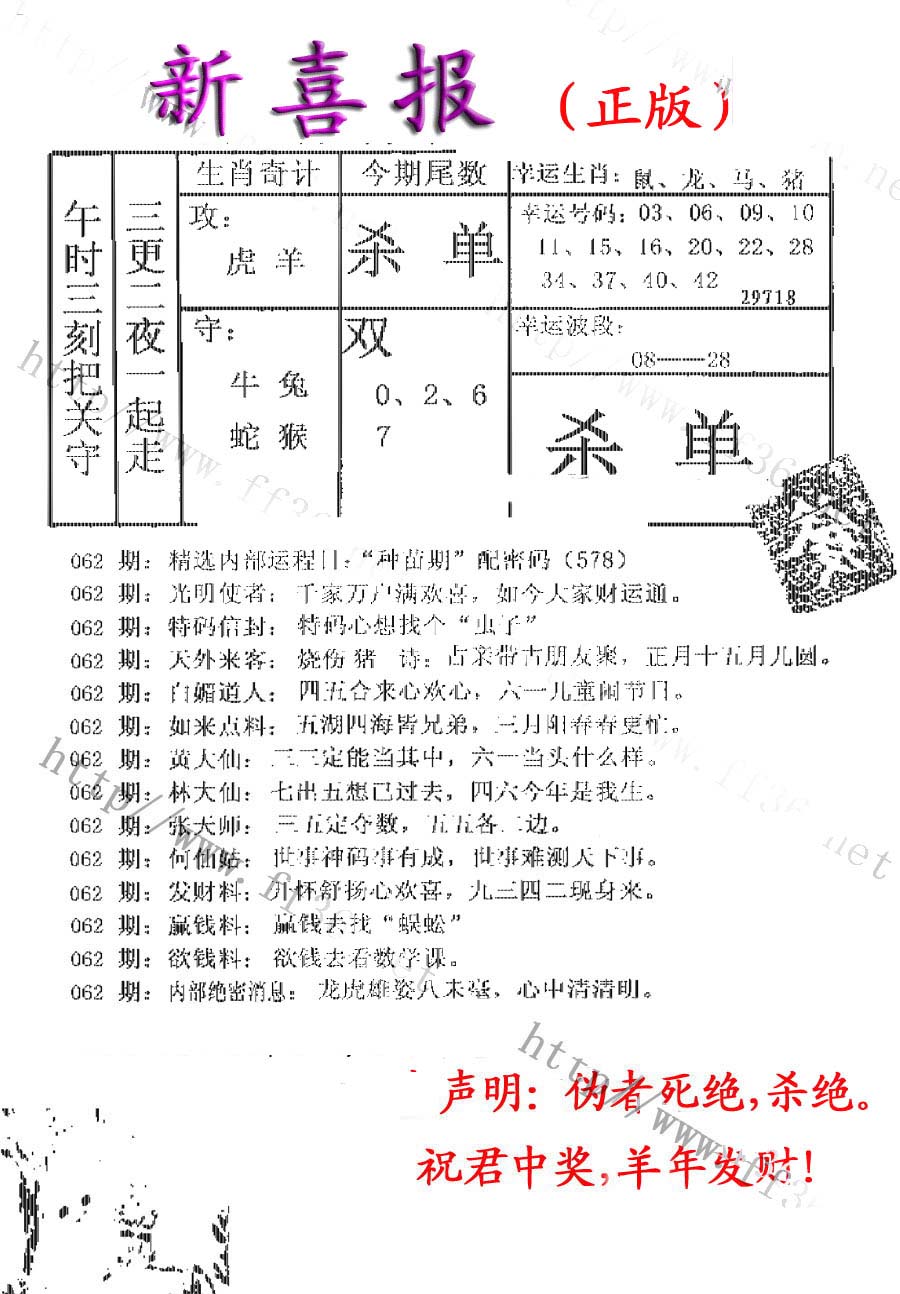 新喜报（正版）
午时三刻把关守
三更二夜一起走
生肖奇计
攻：
虎 羊
守：
牛 兔
蛇 猴
今期尾数
杀 单
双
0、2、6
7
幸运生肖：鼠、龙、马、猪
幸运号码：03、06、09、10
11、15、16、20、22、28
34、37、40、42
29718
幸运波段：
08——28
杀 单
062 期：精选内部运程日：“种苗期”配密码（578）
062 期：光明使者：千家万户满欢喜，如今大家财运通。
062 期：特码信封：特码心想找个“虫子”
062 期：天外来客：烧伤猪 诗：占亲带古朋友聚，正月十五月儿圆。
062 期：白媚道人：四五合来心欢心，六一儿童闹节日。
062 期：如来点料：五湖四海皆兄弟，三月阳春春更忙。
062 期：黄大仙：二三定能当其中，六一当头什么样。
062 期：林大仙：七出五想已过去，四六今年是我生。
062 期：张天师：三五定夺数，五五各二边。
062 期：何仙姑：世事神码事有成，世事难测天下事。
062 期：发财料：开怀舒扬心欢喜，九三四二现身来。
062 期：赢钱料：赢钱去找“蜈蚣”
062 期：欲钱料：欲钱去看数学课。
062 期：内部绝密消息：龙虎雄姿八未毫，心中清清明。
声明：伪者死绝,杀绝。
祝君中奖,羊年发财!